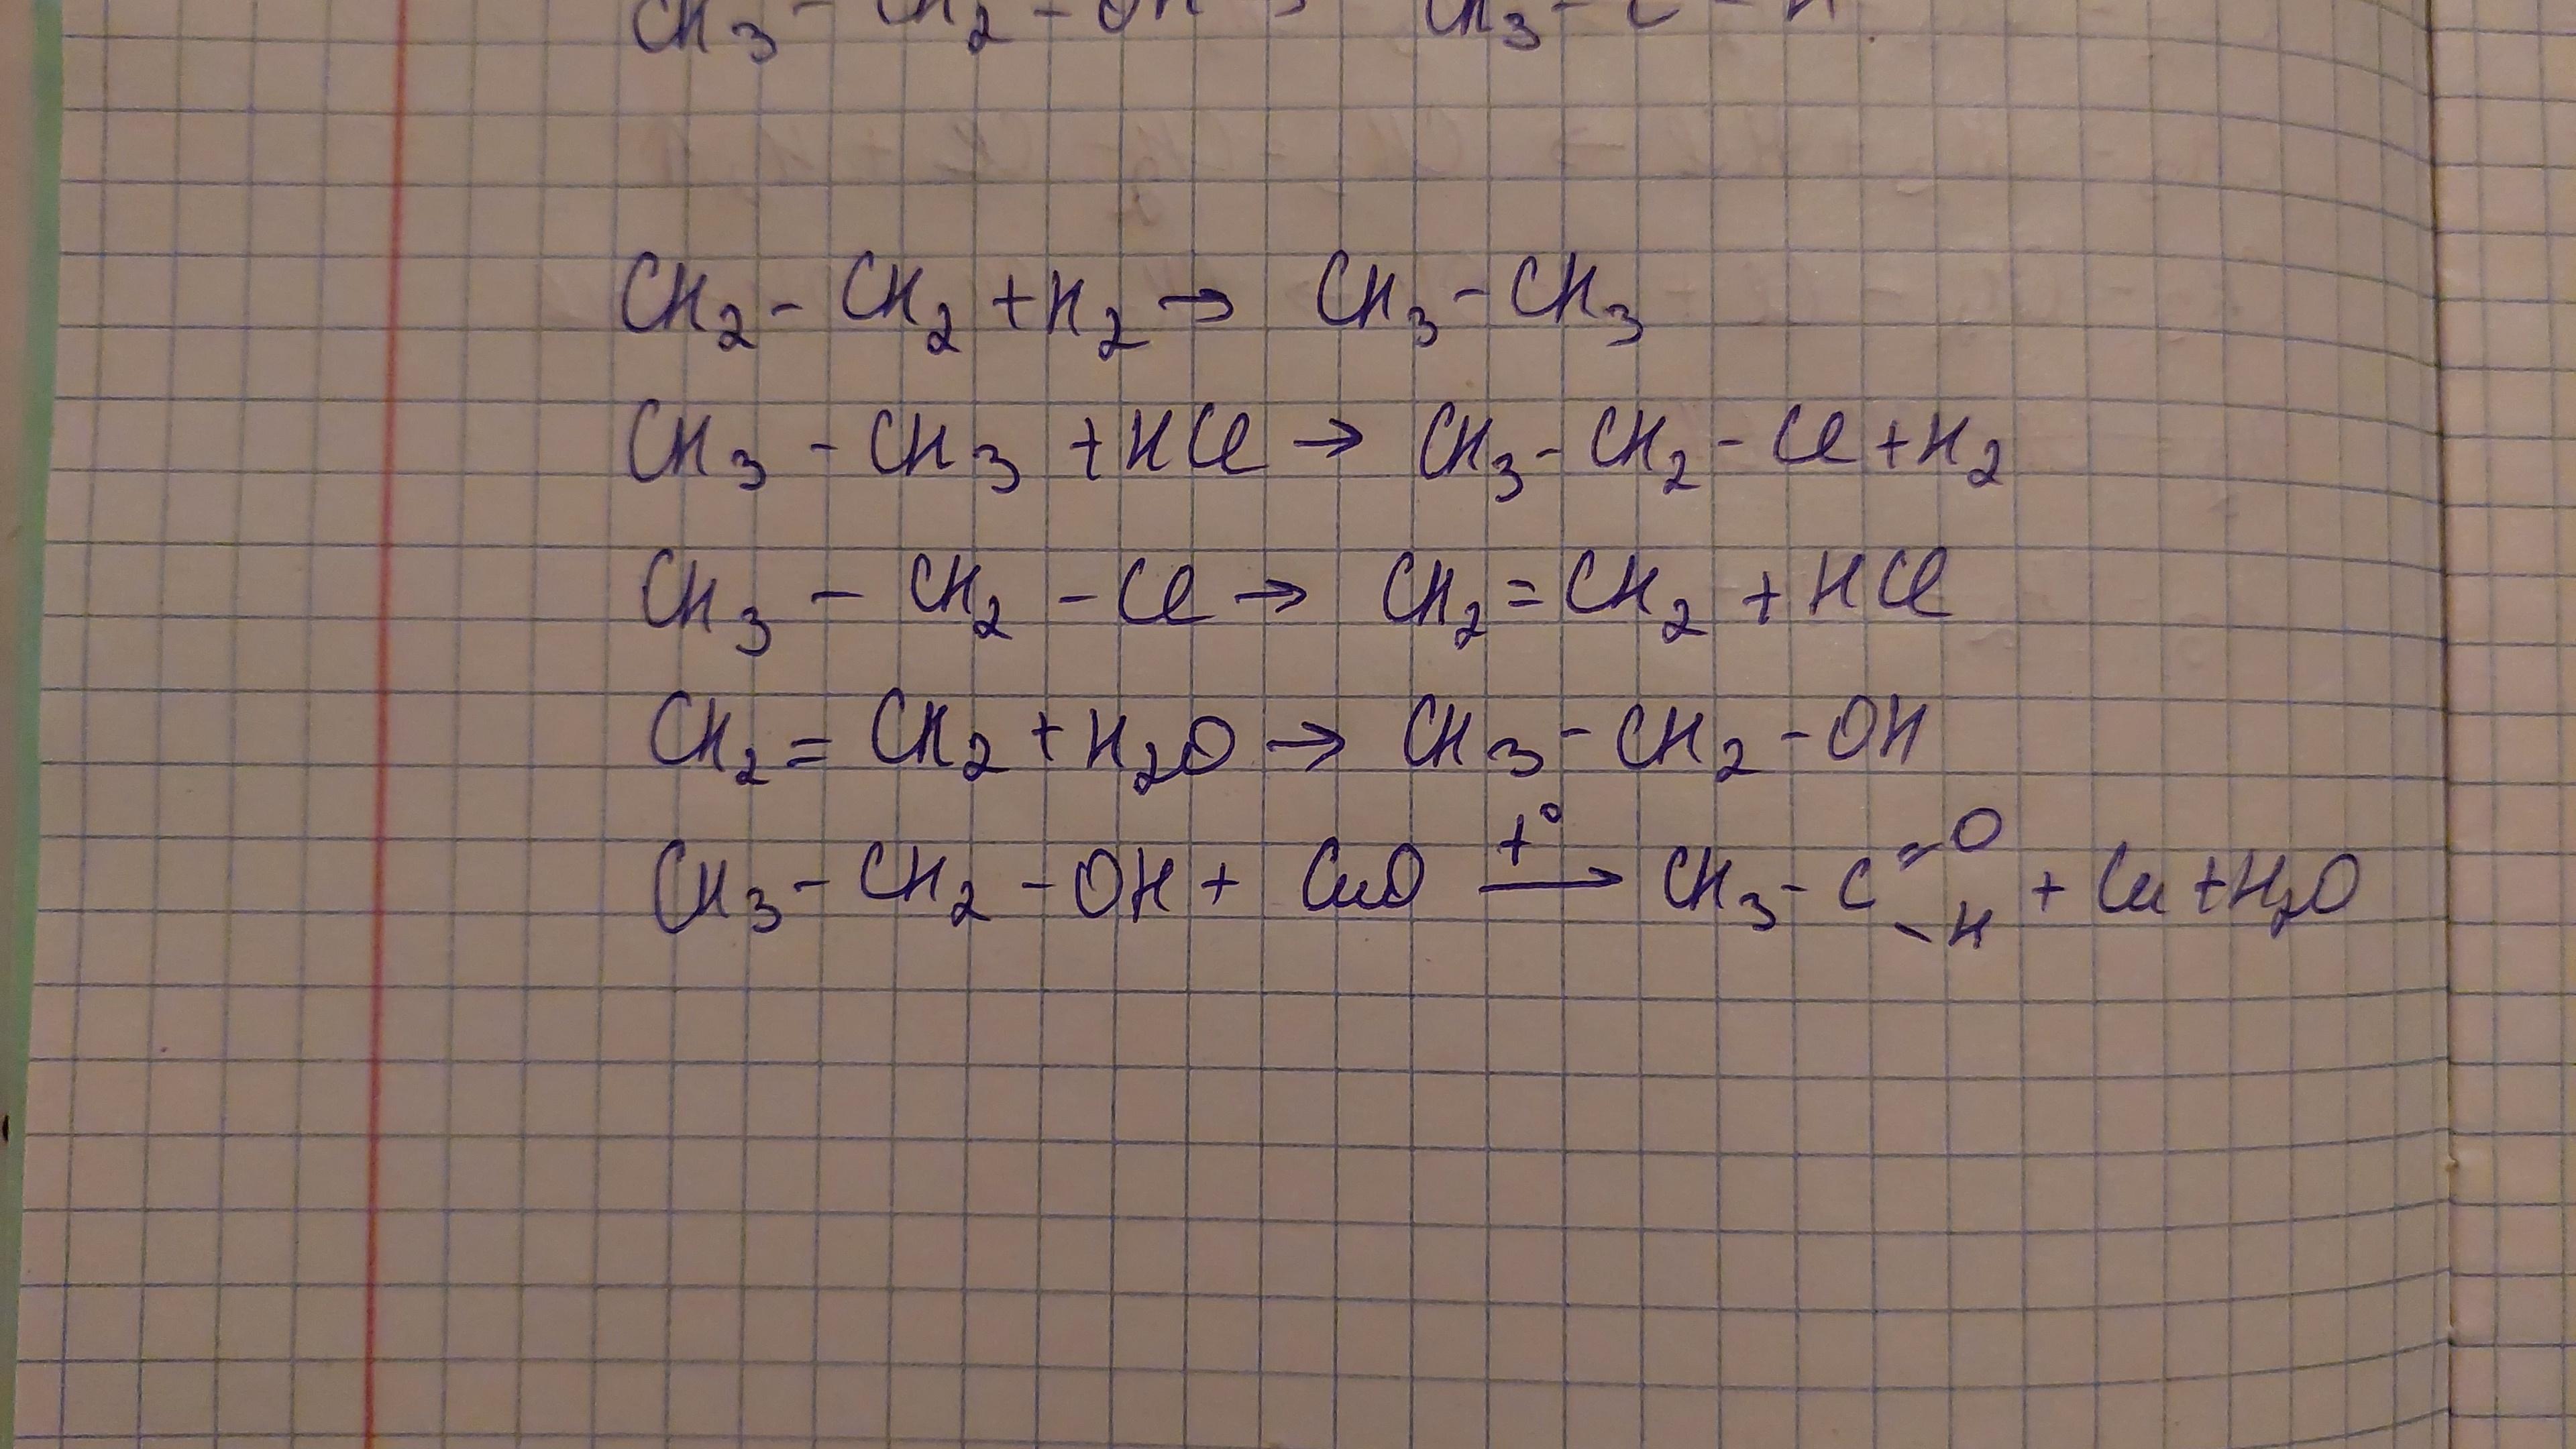 CH₃ - CH₂ - OH → CH₃ - C - H
CH₂ - CH₂ + H₂ → CH₃ - CH₃
CH₃ - CH₃ + HCl → CH₃ - CH₂ - Cl + H₂
CH₃ - CH₂ - Cl → CH₂ = CH₂ + HCl
CH₂ = CH₂ + H₂O → CH₃ - CH₂ - OH
CH₃ - CH₂ - OH + CuO →(t°) CH₃ - C (= O) (- H) + Cu + H₂O